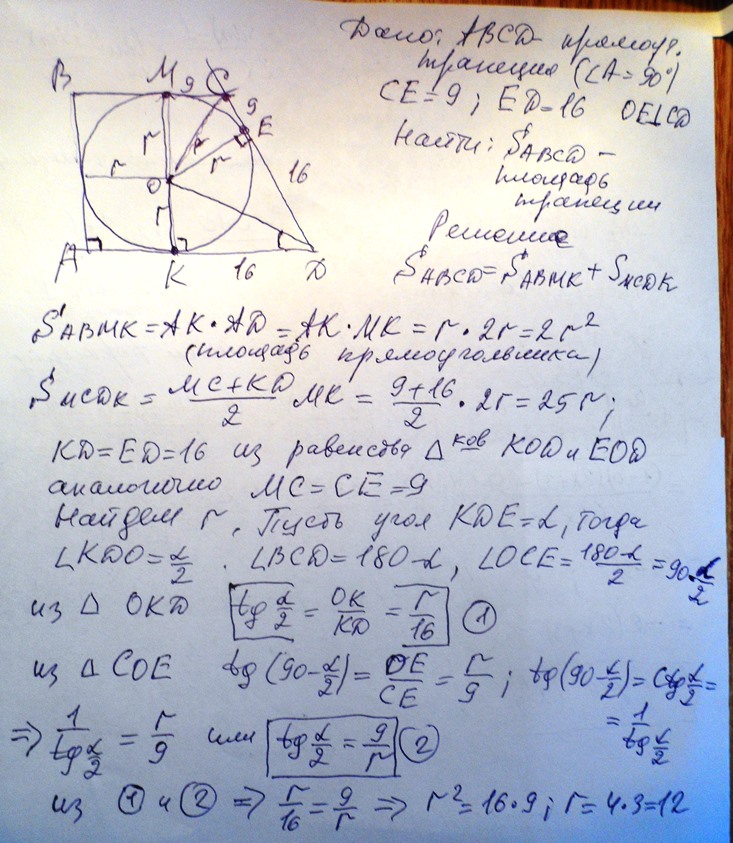 Дано: ABCD - прямоуг.
трапеция (∠A = 90°)
CE = 9 ; ED = 16 OE⊥CD
Найти: S ABCD -
площадь
трапеции
Решение
S ABCD = S ABMK + S MCDK
B M 9 C 9 E 16 r r r r r O A K 16 D
S ABMK = AK · AD = AK · MK = r · 2r = 2r²
(площадь прямоугольника)
S MCDK = (MC + KD)/2 · MK = (9+16)/2 · 2r = 25r ;
KD = ED = 16 из равенства △ ков KOD и EOD
аналогично MC = CE = 9
Найдем r. Пусть угол KDE = α, тогда
∠KDO = α/2 . ∠BCD = 180 - α, ∠OCE = (180 - α)/2 = 90 - α/2
из △ OKD tg α/2 = OK/KD = r/16 ①
из △ COE tg (90 - α/2) = OE/CE = r/9 ; tg(90 - α/2) = ctg α/2 =
= 1/tg α/2
⇒ 1/tg α/2 = r/9 или tg α/2 = 9/r ②
из ① и ② ⇒ r/16 = 9/r ⇒ r² = 16·9 ; r = 4·3 = 12